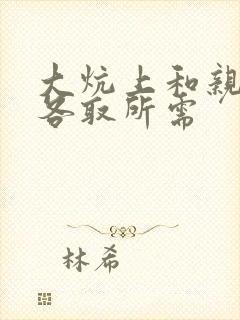 大炕上和亲
各取所需
林希